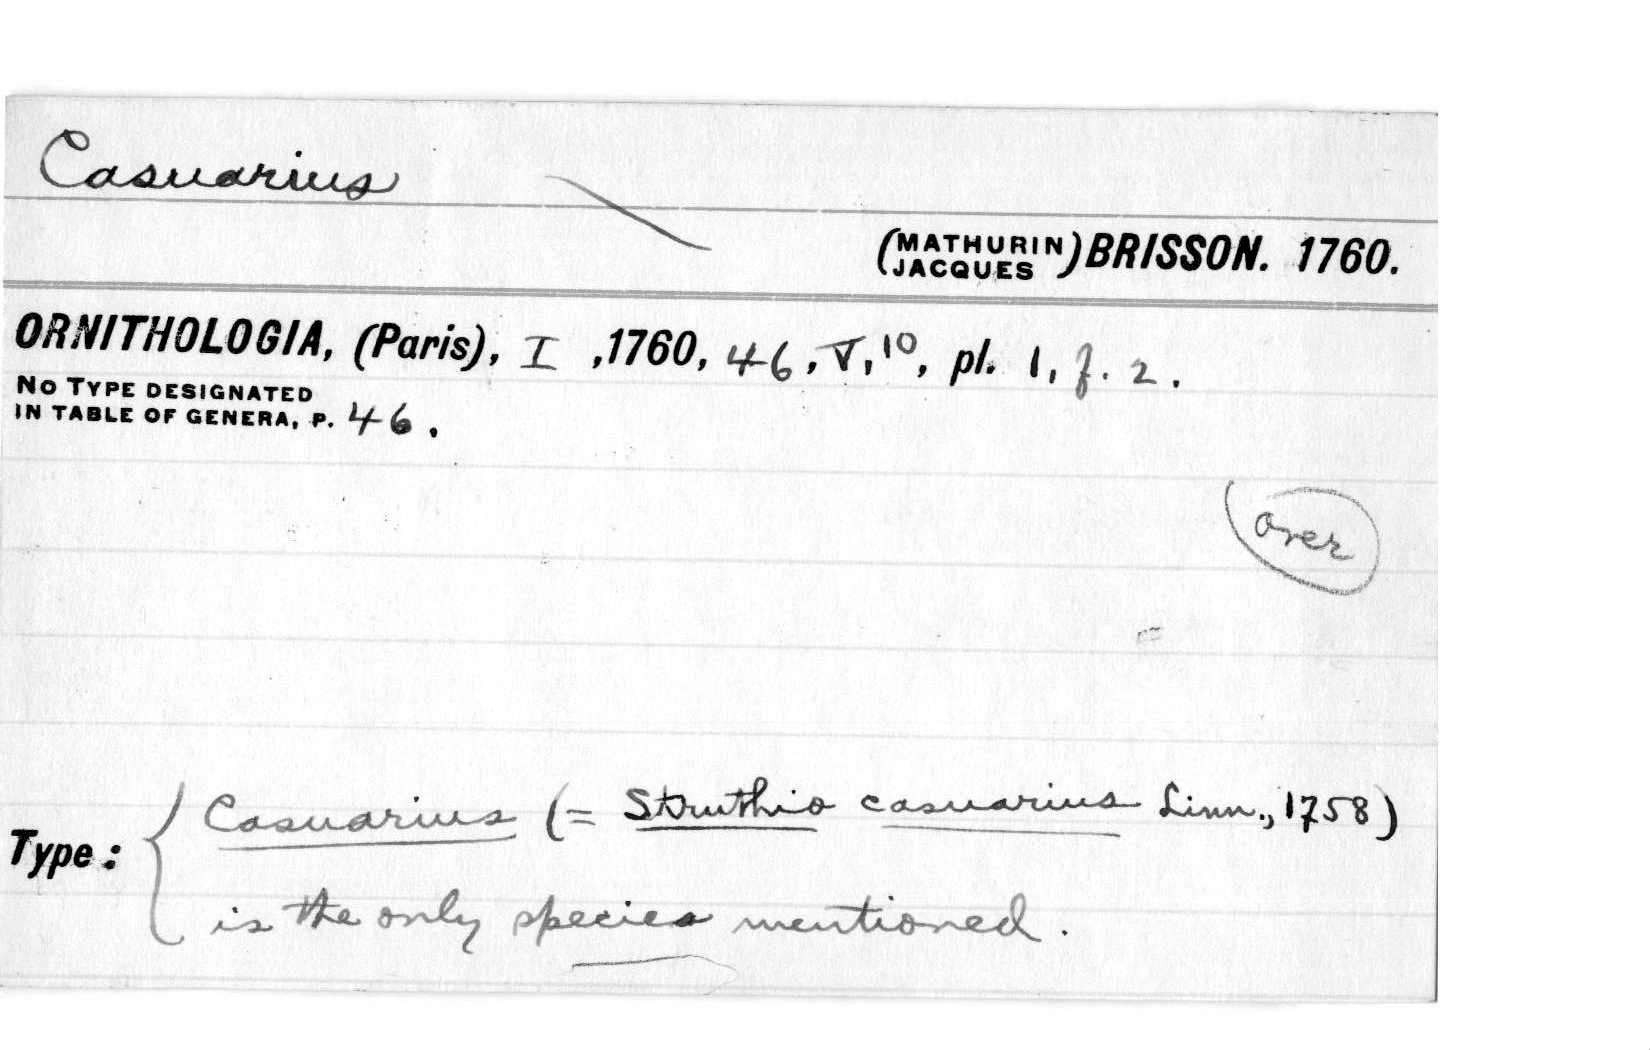 Casuarius
(MATHURIN JACQUES) BRISSON. 1760.
ORNITHOLOGIA, (Paris), I, 1760, 46, V, 10, pl. 1, f. 2.
NO TYPE DESIGNATED
IN TABLE OF GENERA, P. 46.
over
Type: { Casuarius (= Struthio casuarius Linn., 1758)
is the only species mentioned.